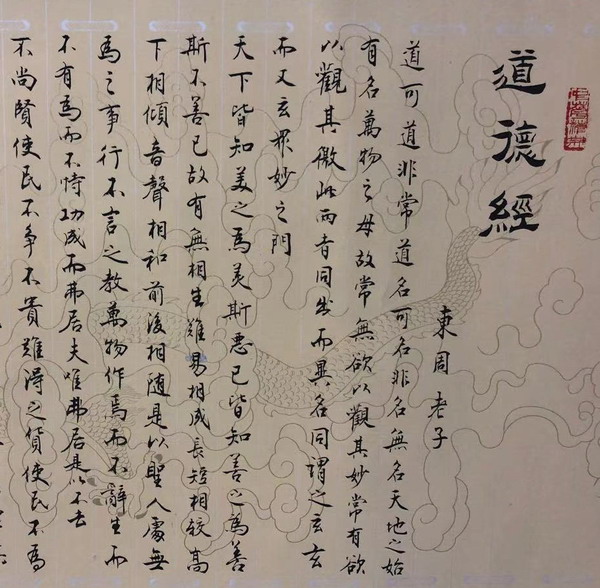 道德經
東周老子
道可道非常道名可名非名無名天地之始
有名萬物之母故常無欲以觀其妙常有欲
以觀其徼此兩者同出而異名同謂之玄玄
而又玄眾妙之門
天下皆知美之為美斯惡已皆知善之為善
斯不善已故有無相生難易相成長短相較高
下相傾音聲相和前後相随是以聖人處無
為之事行不言之教萬物作焉而不辭生而
不有為而不恃功成而弗居夫唯弗居是以不去
不尚賢使民不争不貴難得之貨使民不為